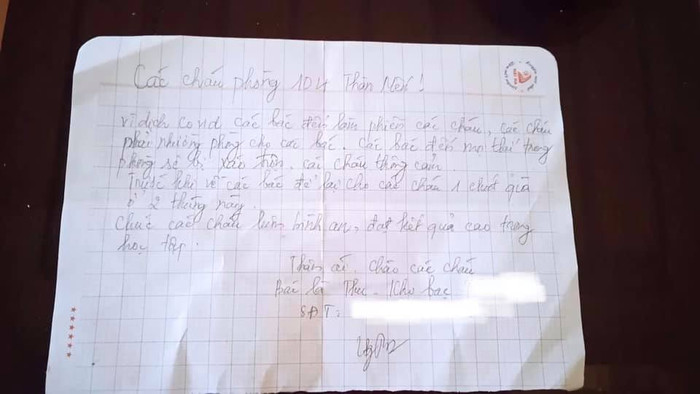 Các cháu phòng 104 Thân Mến!
vì dịch covid các bác đến làm phiền các cháu. các cháu
phải nhường phòng cho các bác. Các bác đến mọi thứ trong
phòng sẽ bị xáo trộn. các cháu thông cảm.
Trước khi về các bác để lại cho các cháu 1 chút quà
ở 2 thùng này.
Chúc các cháu luôn bình an, đạt kết quả cao trong
học tập.
Thân ái. chào các cháu
Bác là Thu
SĐT: